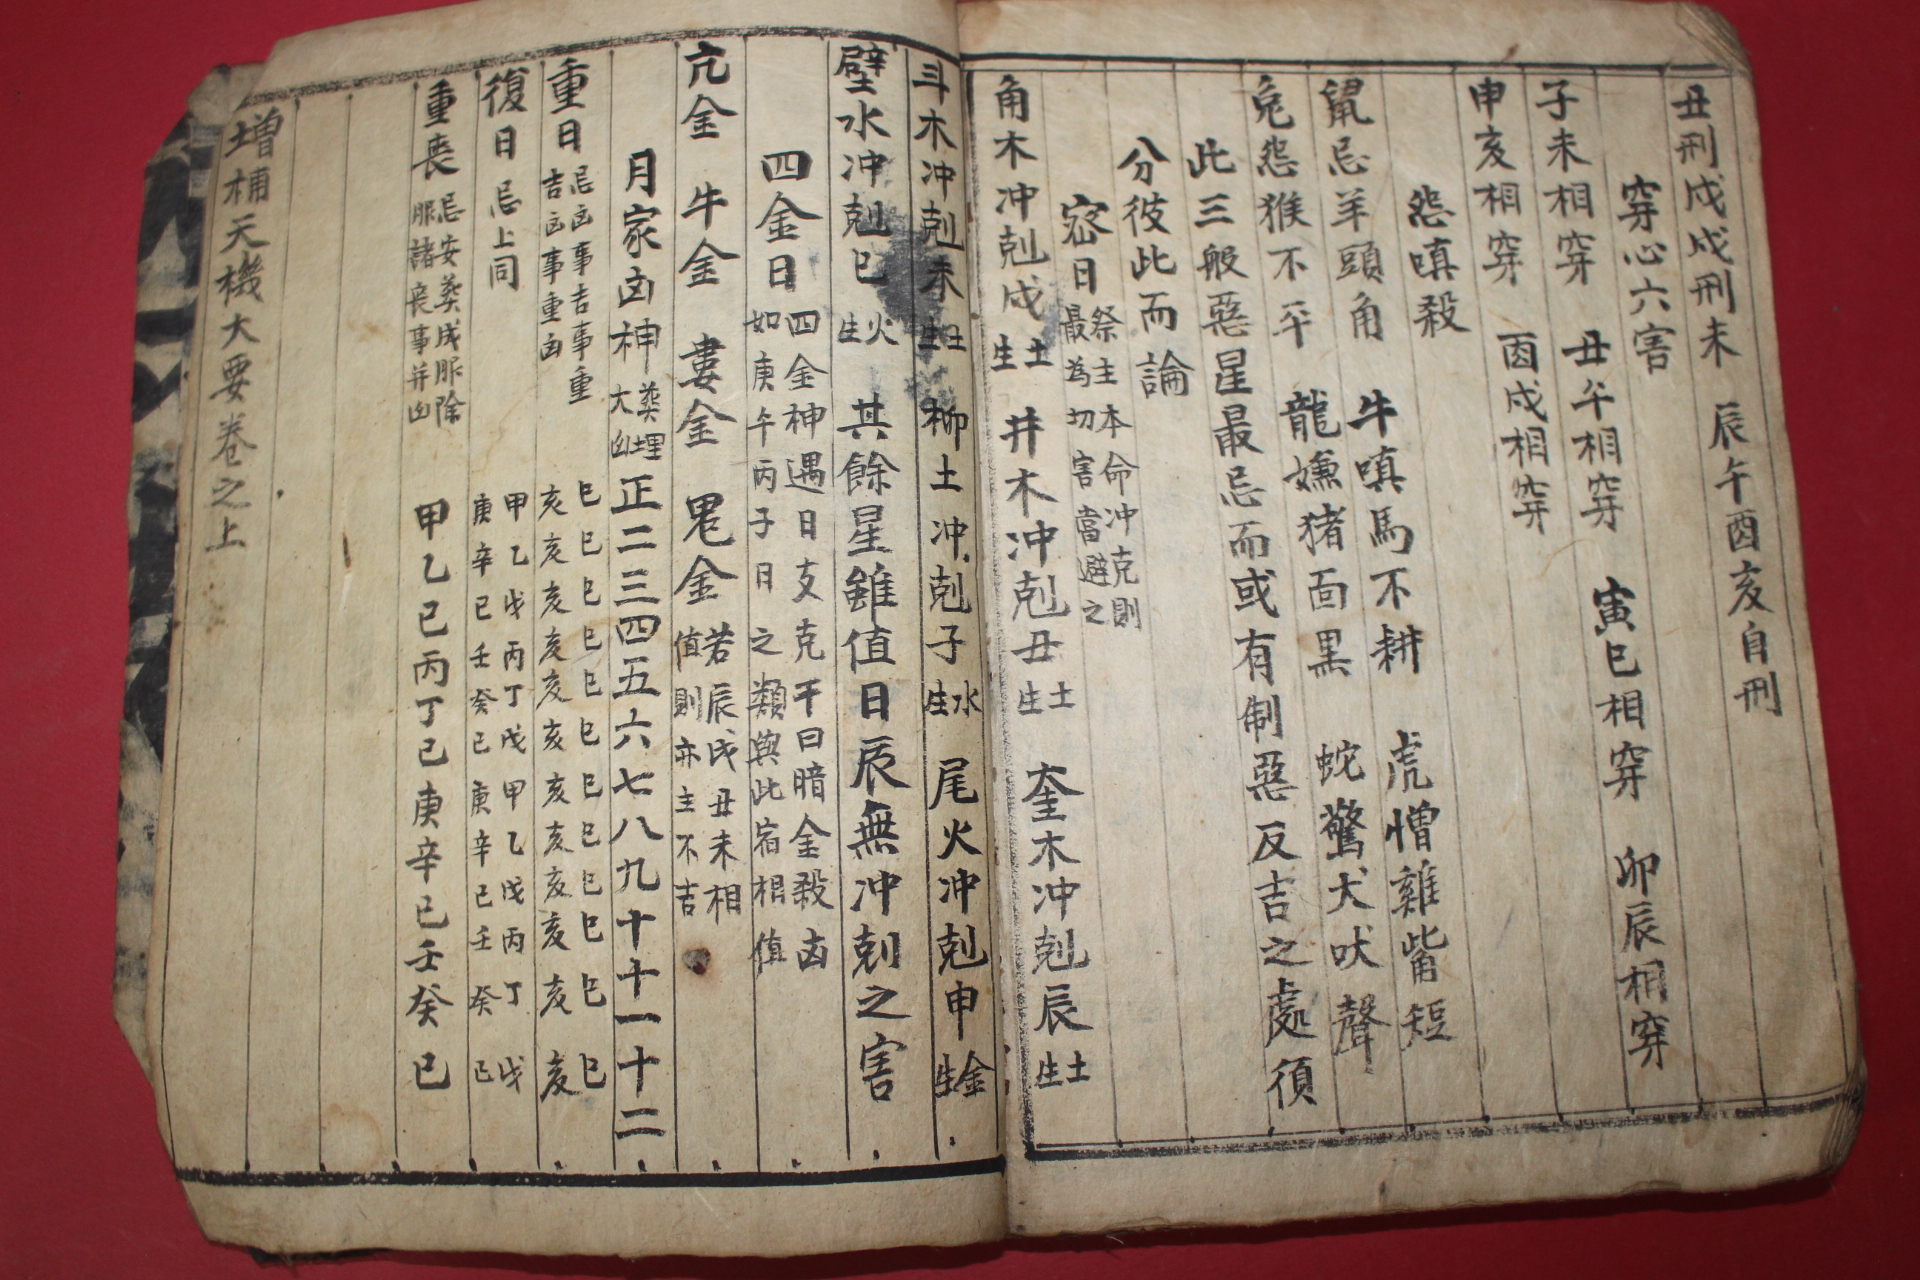 丑刑戌戌刑未 辰午酉亥自刑
穿心六害
子未相穿 丑午相穿 寅巳相穿 卯辰相穿
申亥相穿 酉戌相穿
怨嗔殺
鼠忌羊頭角 牛嗔馬不耕 虎憎雞觜短
兔怨猴不平 龍嫌猪面黑 蛇驚犬吠聲
此三般惡星最忌而或有制惡反吉之處須
分彼此而論
密日 祭主本命冲克則
最為切害當避之
角木冲剋戌 土生 井木冲剋丑 土生 奎木冲剋辰 土生
斗木冲剋未 土生 柳土冲剋子 水生 尾火冲剋申 金生
壁水冲剋巳 火生 其餘星雖值日辰無冲剋之害
四金日 四金神遇日支克干曰暗金殺凶
如庚午丙子日之類與此宿相值
亢金 牛金 婁金 鬼金 若辰戌丑未相
值則亦主不吉
月家凶神 葬埋大凶 正二三四五六七八九十十一十二
重日 忌凶事吉事重
吉凶事重凶 巳巳巳巳巳巳巳巳巳巳巳巳
亥亥亥亥亥亥亥亥亥亥亥亥
復日 忌上同 甲乙戊丙丁戊甲乙戊丙丁戊
庚辛己壬癸己庚辛己壬癸己
重喪 忌安葬成服除
服諸喪事并凶 甲乙己丙丁己庚辛己壬癸己
增補天機大要卷之上